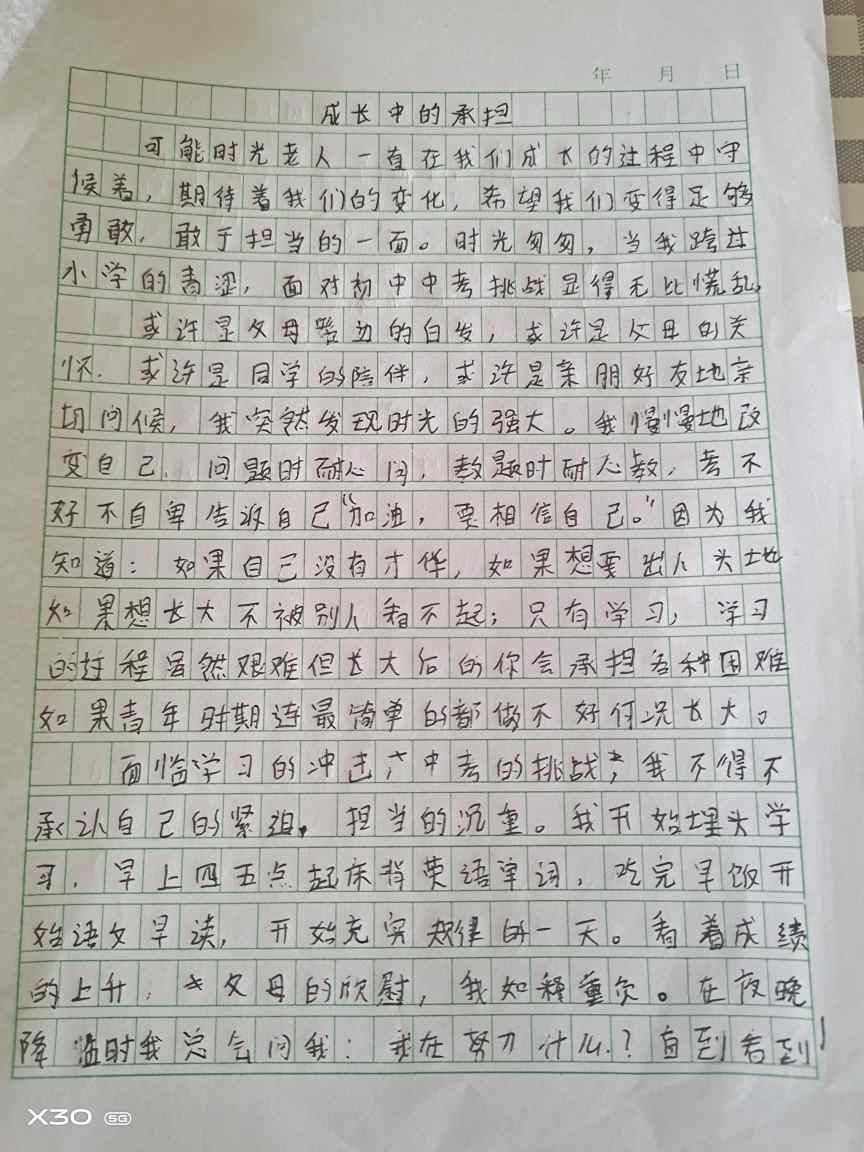 年 月 日
成长中的承担
可能时光老人一直在我们成长的过程中守
候着，期待着我们的变化，希望我们变得足够
勇敢，敢于担当的一面。时光匆匆，当我跨过
小学的青涩，面对初中中考挑战显得无比慌乱，
或许是父母鬓边的白发，或许是父母的关
怀．或许是同学的陪伴，或许是亲朋好友地亲
切问候，我突然发现时光的强大。我慢慢地改
变自己．问题时耐心问，教题时耐心教，考不
好不自卑告诉自己“加油，要相信自己。”因为我
知道：如果自己没有才华，如果想要出人头地
如果想长大不被别人看不起；只有学习，学习
的过程虽然艰难但长大后的你会承担各种困难
如果青年时期连最简单的都做不好何况长大。
面临学习的冲击，“中考的挑战”，我不得不
承认自己的紧迫，担当的沉重。我开始埋头学
习．早上四五点起床背英语单词，吃完早饭开
始语文早读，开始充实规律的一天。看着成绩
的上升，父母的欣慰，我如释重负。在夜晚
降临时我总会问我：我在努力什么？直到看到
X30 5G